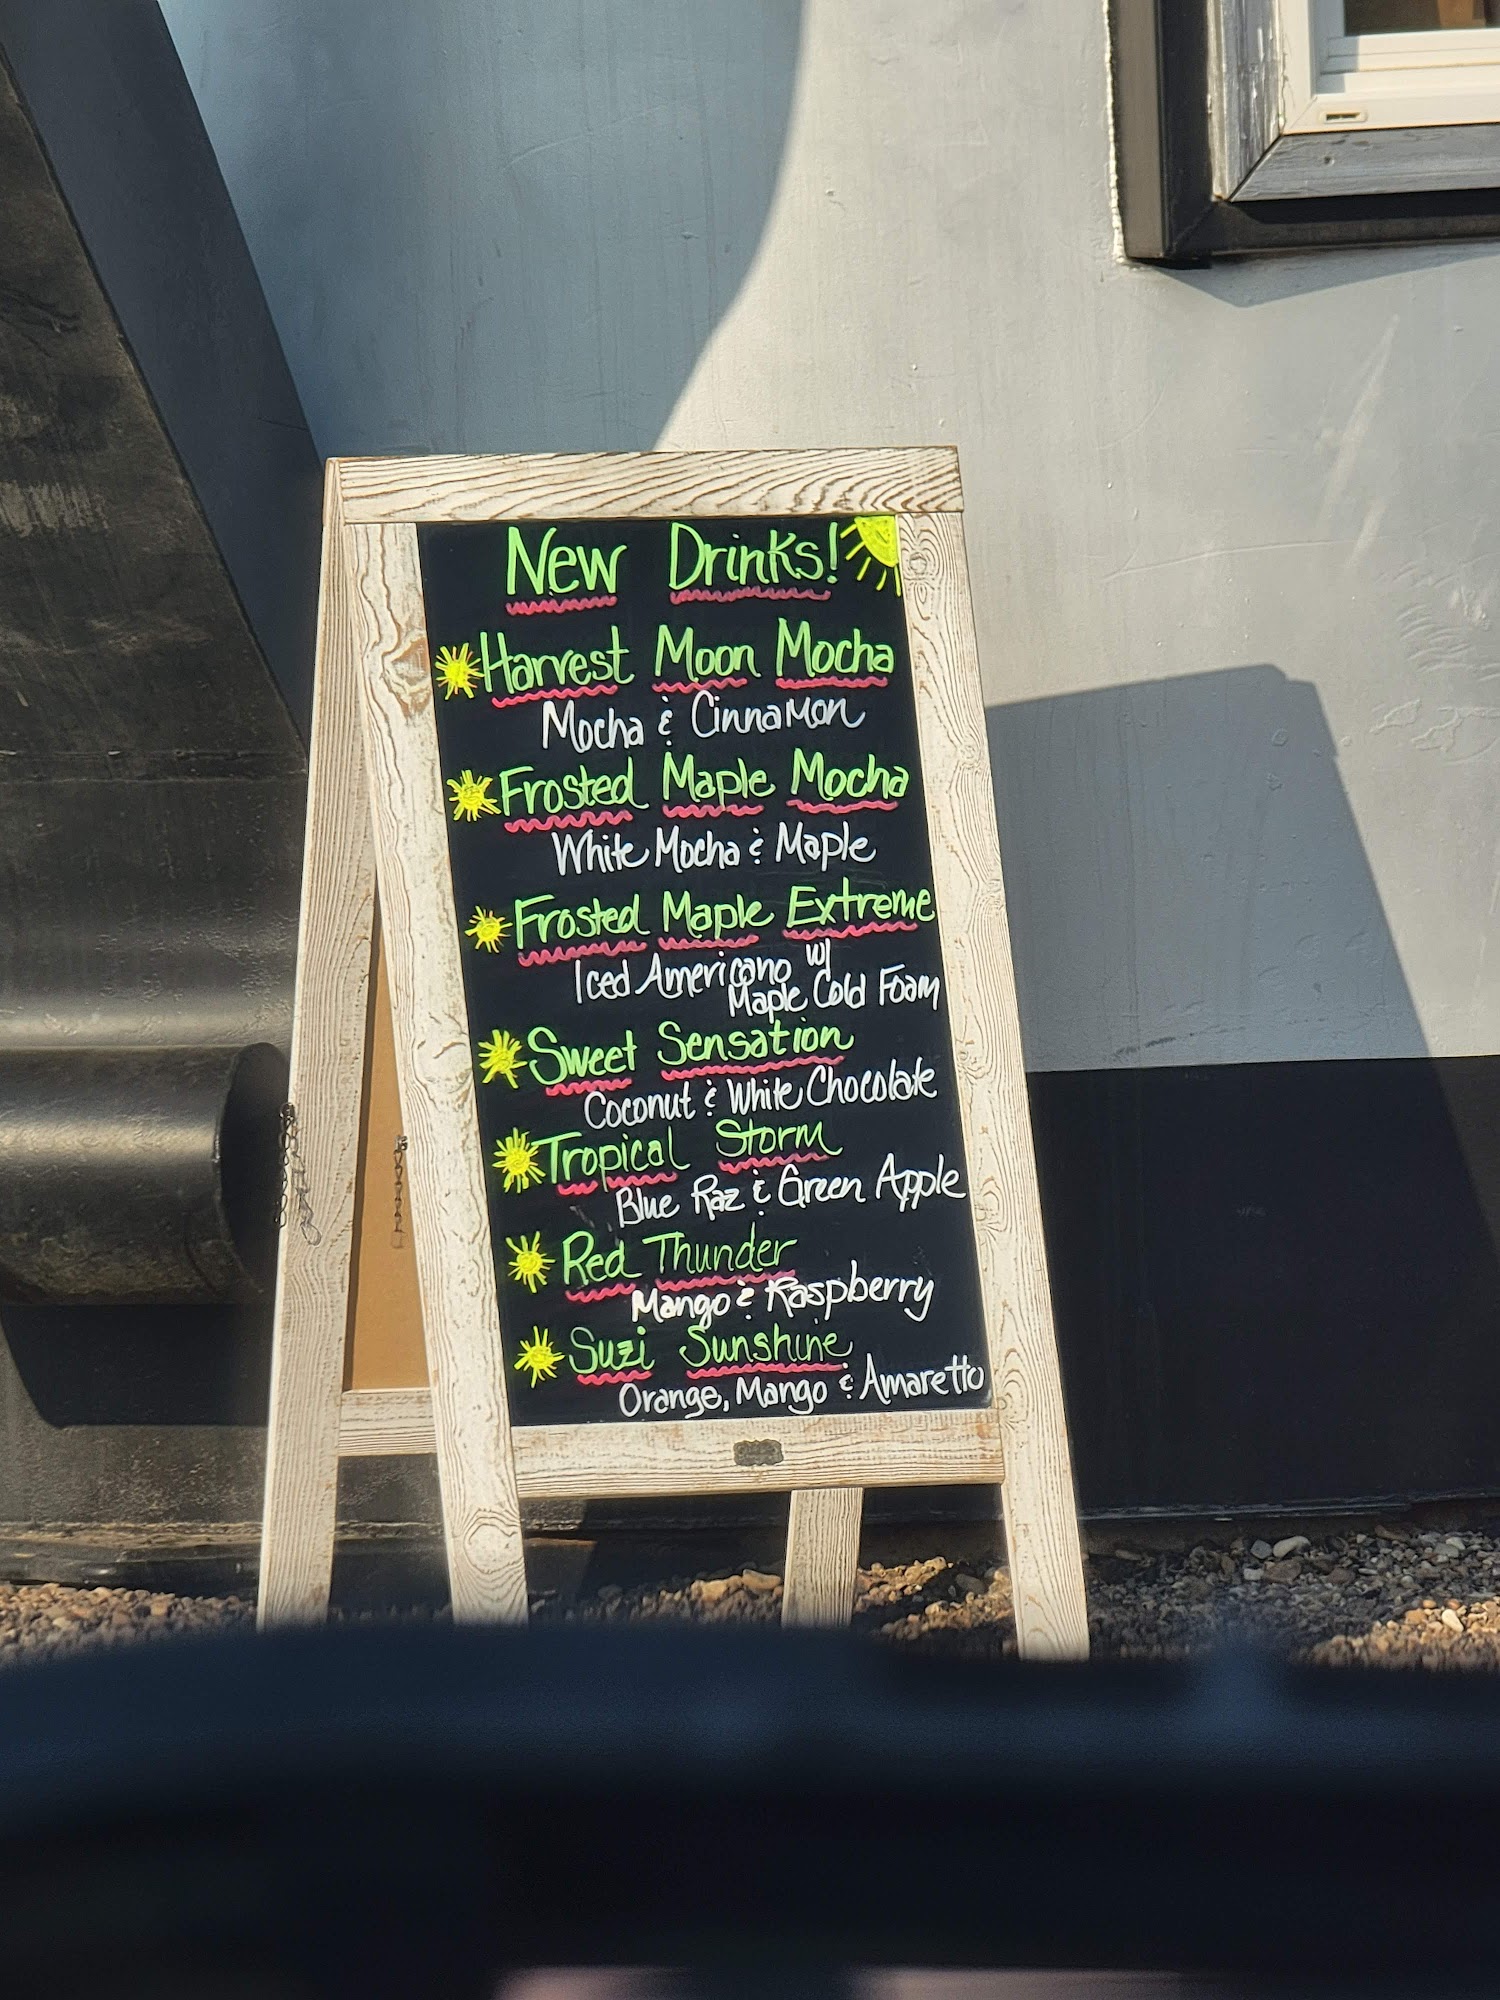 New Drinks!
Harvest Moon Mocha
Mocha & Cinnamon
Frosted Maple Mocha
White Mocha & Maple
Frosted Maple Extreme
Iced Americano w/
Maple Cold Foam
Sweet Sensation
Coconut & White Chocolate
Tropical Storm
Blue Raz & Green Apple
Red Thunder
Mango & Raspberry
Suzi Sunshine
Orange, Mango & Amaretto